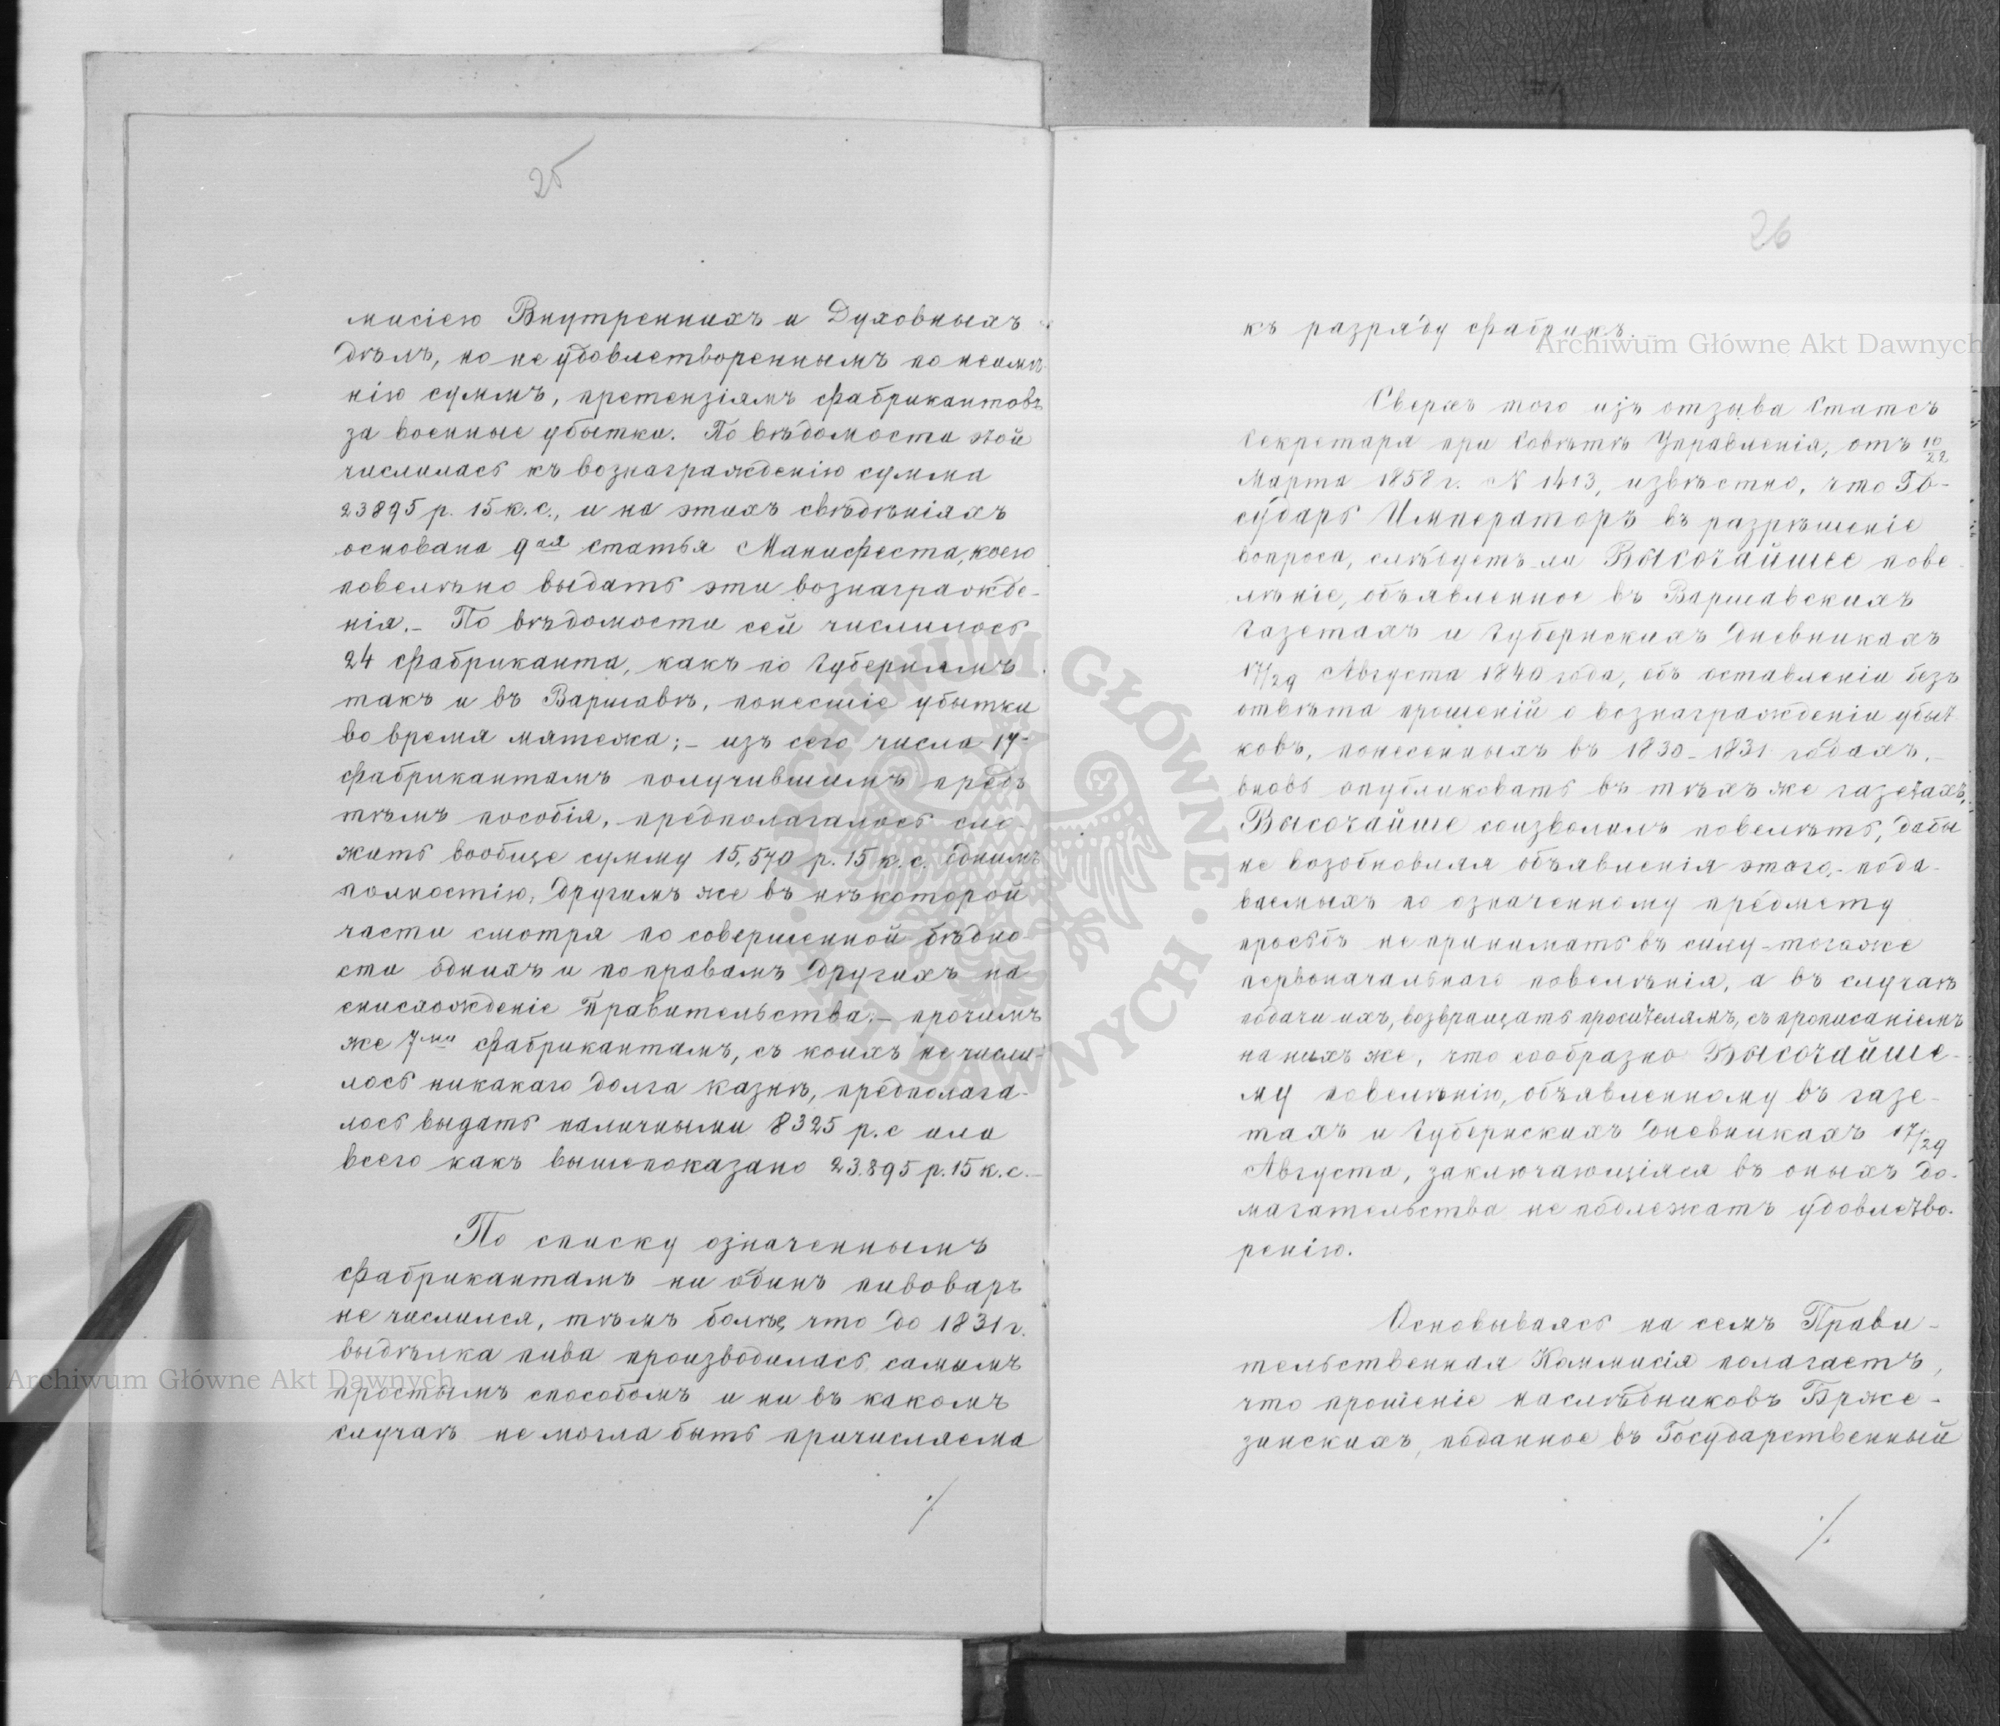 25
мисіею Внутреннихъ и Духовныхъ
Дѣлъ, но не удовлетвореннымъ по неимѣ-
нію суммъ, претензіямъ фабрикантовъ
за военные убытки. По вѣдомости этой
числилась къ вознагражденію сумма
23895 р. 15 к. с., и на этихъ свѣдѣніяхъ
основана 9ая статья Манифеста, коею
повелѣно выдать эти вознагражде-
нія.- По вѣдомости сей числилось
24 фабриканта, какъ по Губерніямъ
такъ и въ Варшавѣ, понесшіе убытки
во время мятежа; - изъ сего числа 17-
фабрикантамъ получившимъ предъ
тѣмъ пособія, предполагалось сло-
жить вообще сумму 15,570 р. 15 к. с. однимъ
полностію, другимъ же въ нѣкоторой
части смотря по совершенной бѣдно-
сти однихъ и по правамъ другихъ на
снисхожденіе Правительства; - прочимъ
же 7ми фабрикантамъ, съ коихъ не числи-
лось никакаго долга казнѣ, предполага-
лось выдать наличными 8325 р. с или
всего какъ вышепоказано 23.895 р. 15 к. с.-
По списку означеннымъ
фабрикантамъ ни одинъ пивоваръ
не числился, тѣмъ болѣе, что до 1831 г.
выдѣлка пива производилась самымъ
простымъ способомъ и ни въ какомъ
случаѣ не могла быть причисляема
./.
26
къ разряду фабрикъ.
Сверхъ того изъ отзыва Статсъ
Секретаря при Совѣтѣ Управленія, отъ 10/22
Марта 1858 г. N 1413, извѣстно, что Го-
сударь Императоръ въ разрѣшеніе
вопроса, слѣдуетъ-ли Высочайшее пове-
лѣніе, объявленное въ Варшавскихъ
газетахъ и Губернскихъ Дневникахъ
17/29 Августа 1840 года, объ оставленіи безъ
отвѣта прошеній о вознагражденіи убыт
ковъ, понесенныхъ въ 1830-1831 годахъ.-
вновь опубликовать въ тѣхъ же газетахъ,
Высочайше соизволилъ повелѣть, дабы
не возобновляя объявленія этого,- пода-
ваемыхъ по означенному предмету
просьбъ не принимать въ силу-тогоже
первоначальнаго повелѣнія, а въ случаѣ
подачи ихъ, возвращать просителямъ, съ прописаніемъ
на нихъ же, что сообразно Высочайше-
му повелѣнію, объявленному въ газе-
тахъ и Губернскихъ Дневникахъ 17/29
Августа, заключающіяся въ оныхъ до-
магательства не подлежатъ удовлетво-
ренію.
Основываясь на семъ Прави-
тельственная Коммисія полагаетъ,
что прошеніе наслѣдниковъ Брже-
зинскихъ, поданное въ Государственный
./.
Archiwum Główne Akt Dawnych
Archiwum Główne Akt Dawnych
ARCHIWUM GŁÓWNE AKT DAWNYCH